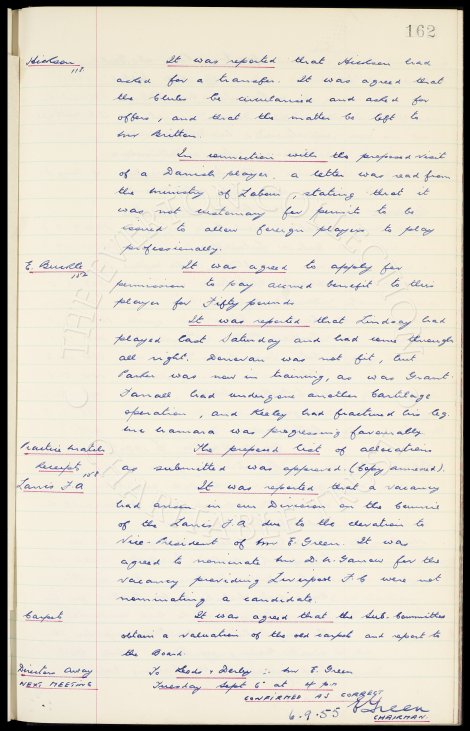 162
Hickson 118 It was reported that Hickson had
asked for a transfer. It was agreed that
the Clubs be circularised and asked for
offers, and that the matter be left to
Mr Britton.
In connection with the proposed visit
of a Danish player, a letter was read from
the Ministry of Labour, stating that it
was not customary for permits to be
issued to allow foreign players to play
professionally.
E. Buckle 152 It was agreed to apply for
permission to pay accrued benefit to this
player for Fifty pounds
It was reported that Lindsay had
played last Saturday and had come through
all right. Donovan was not fit, but
Parker was now in training, as was Grant.
Farrall had undergone another Cartilage
operation, and Keeley had fractured his leg.
McNamara was progressing favourably.
Practice Match The proposed list of allocations
Receipts 158 as submitted was approved. (Copy annexed).
Lancs F A It was reported that a vacancy
had arisen in our Division on the Council
of the Lancs F A due to the elevation to
Vice-President of Mr E. Green. It was
agreed to nominate Mr D. A. for the
vacancy providing Liverpool F C were not
nominating a candidate.
Carpets It was agreed that the Sub-Committee
obtain a valuation of the old carpet and report to
the Board.
Directors Away To Leeds & Derby :- Mr E. Green
NEXT MEETING Tuesday Sept 6 at 4 pm
CONFIRMED AS CORRECT
6.9.55 Green
CHAIRMAN